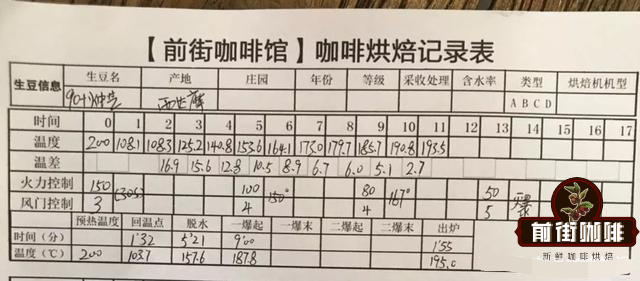 【前街咖啡馆】咖啡烘焙记录表
生豆信息 生豆名 产地 庄园 年份 等级 采收处理 含水率 类型 烘焙机机型
90+ A B C D
时间 0 1 2 3 4 5 6 7 8 9 10 11 12 13 14 15 16 17
温度 200 108.1 108.3 125.2 140.8 153.6 164.1 173.0 179.7 185.7 190.8 193.5
温差 16.9 15.6 12.8 10.5 8.9 6.7 6.0 5.1 2.7
火力控制 150 100 80 50
风门控制 3 (30s) 4 150° 4 167° 5
预热温度 回温点 脱水 一爆起 一爆末 二爆起 二爆末 出炉
时间(分) 1'32 5'21 9'00 1'55
温度(℃) 200 103.7 157.6 187.8 195.0
前街咖啡
新鲜咖啡烘焙